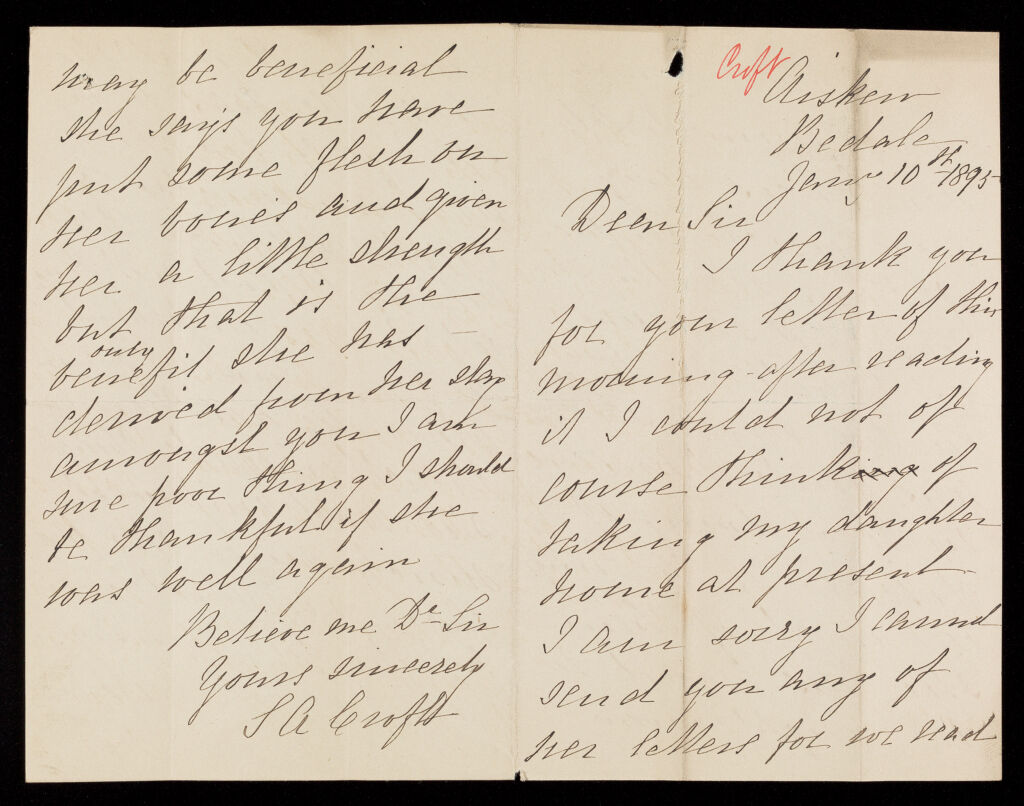 Croft
Aiskew
Bedale
Jany 10th 1895
Dear Sir
I thank you
for your letter of this
morning - after reading
it I could not of
course thinking of
taking my daughter
home at present
I am sorry I cannot
send you any of
her letters for we read
may be beneficial
she says you have
put some flesh on
her bones and given
her a little strength
but that is the
only
benefit she has -
derived from her stay
amongst you I am
sure poor thing I should
be thankful if she
was well again
Believe me Dr Sir
Yours sincerely
S A Croft